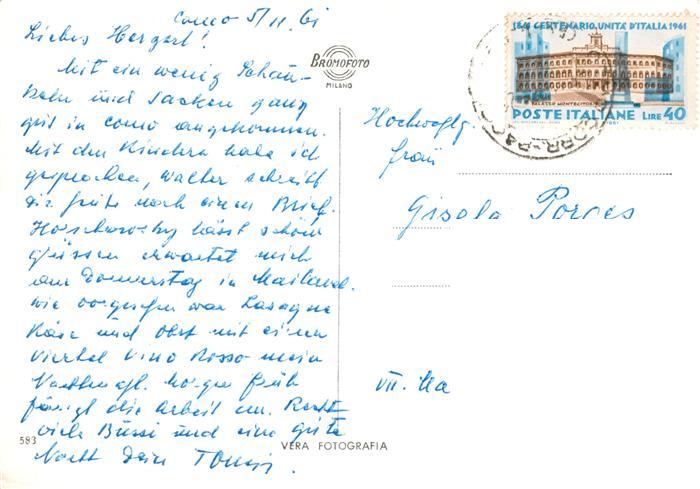 Como 5/11.61
Liebes Herzerl!
Mit ein wenig Schau-
keln und Sacken ganz
gut in Como angekommen.
Mit den Kindern habe ich
gesprochen, Walter schreibt
dir heute noch einen Brief.
Horschowsky lässt schön
grüssen erwartet mich
am Donnerstag in Mailand.
Wie vorgesehen war Lasagne
Käse und Obst mit einem
Viertel Vino Rosso mein
Nachtmahl. Morgen früh
fängt die Arbeit an. Recht
viele Bussi und eine gute
Nacht Dein
583
BROMOFOTO
MILANO
VERA FOTOGRAFIA
1861 CENTENARIO UNITÀ D'ITALIA 1961
PALAZZO MONTECITORIO
POSTE ITALIANE LIRE 40
Frau
Gisela Porges